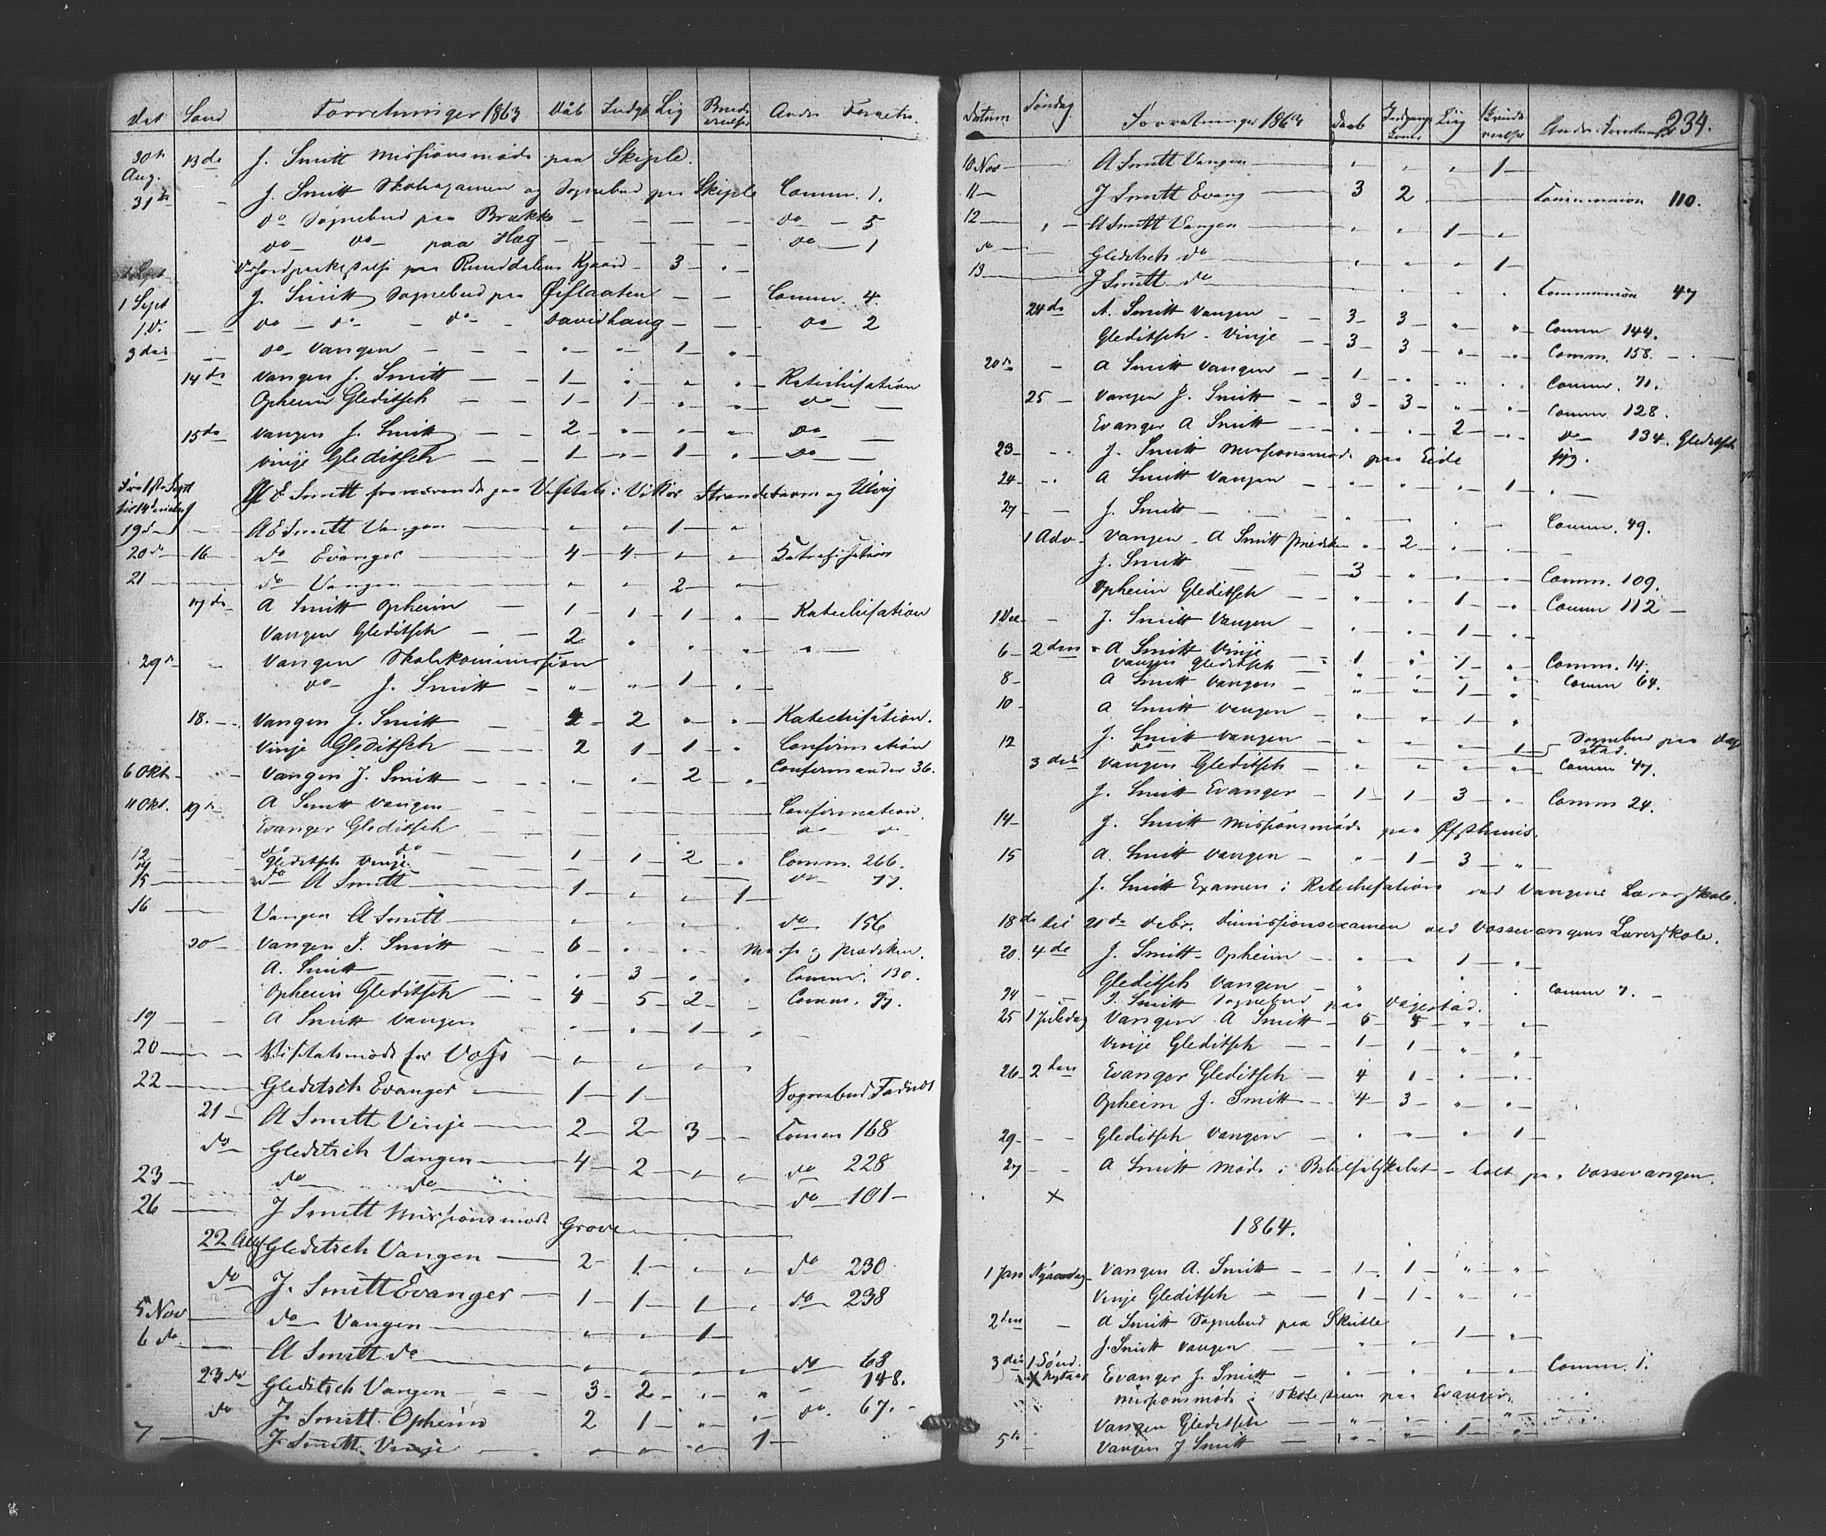 Dat Sönd Forretninger 1863 Dåb Indgt Lig Brudevielse Andre Forretn.
30te Aug. 13de J. Smitt Missionsmöde paa Skiple.
31te J. Smitt Skolexamen og Sognebud paa Skiple Comm. 1.
do Sognebud paa Brække do 5
do do paa Hæg do 1
3
1 Sept J. Smitt Sognebud paa Comm. 4
1 d. do do do Davidhaug do 2
3die do Vangen 1
14de Vangen J. Smitt 1 Katechisation
Opheim Gleditsch 1 1 do
15de Vangen J. Smitt 2 do
Vinje Gleditsch 1 1 do
Smitt fraværende paa i Vikör Strandebarm og Ulvig
19de AE Smitt Vangen 1
20de 16 do Evanger 4 4 Katechisation
21 do Vangen 2
17de A Smitt Opheim 1 1 1 Katechisation
Vangen Gleditsch 2
29de Vangen Skolekommission
do J. Smitt 1
18. Vangen J. Smitt 2 2 Katechisation.
Vinje Gleditsch 2 1 1 Confirmation
6 Okt Vangen J. Smitt 2 Confirmander 36.
11 Okt. 19de A Smitt Vangen Confirmation.
Evanger Gleditsch do do
12 do do 1 1 2 Comm. 266.
14 Gleditsch Vinje do 77.
15 do A Smitt 1 1
16 Vangen A Smitt do 156
20 Vangen J. Smitt 6 Messe og Prædiken.
A. Smitt 3 Comm. 130.
Opheim Gleditsch 4 5 2 Comm. 97.
19 A Smitt Vangen 1
20 Visitatsmöde for Voss
22 Gleditsch Evanger 1 1 Sognebud
21 A Smitt Vinje 2 2 3 Comm 168
do Gleditsch Vangen 4 2 do 228
23 do do do 101
26 J Smitt Missionsmöde Grove
22 Gleditsch Vangen 2 1 do 230
do J. Smitt Evanger 1 1 1 do 238
5 Nov do Vangen 1
6 do A Smitt do do 68
23de Gleditsch Vangen 3 2 148.
do J. Smitt Opheim 2 1 do. 67.
7 J. Smitt Vinje 1
234.
Datum Söndag Forretninger 1863 Daab Lig Brudevielse Andre Forretn
10 Nov A Smitt Vangen 1
11 J Smitt Evang 3 2 Communion 110.
12 A Smitt Vangen 1
do Gleditsch do 1
13 J Smitt do Communion 47
24de A. Smitt Vangen 3 3 Comm 144.
Gleditsch Vinje 3 3 Comm. 158.
20de A Smitt Vangen 1 Comm. 71.
25 Vangen J. Smitt 3 3 Comm. 128.
Evanger A Smitt 2 do 134. Gleditsch
23 J. Smitt Missionsmöde paa Eide syg.
24 A Smitt Vangen 1
27 J. Smitt Comm. 49.
1 Adv Vangen A Smitt 2
J. Smitt 3 Comm. 109.
Opheim Gleditsch 1 Comm 112
1 Dec J. Smitt Vangen 1
6 2den A Smitt Vinje 1 1 Comm. 14.
Vangen Gleditsch Comm 64.
8 A Smitt Vangen 1
10 A Smitt Vangen 1
12 J. Smitt Vangen 1 Sognebud paa
3die Vangen Gleditsch Comm 47.
J. Smitt Evanger 1 1 3 Comm 24.
14 J. Smitt Missionsmöde paa
15 A. Smitt Vangen 1 3
J. Smitt Examen i Katechisation ved Vangens Lærerskole.
18de til 21de Debr. Dimissionsexamen ved Vossevangens Lærerskole.
20. 4de J. Smitt Opheim 1
Gleditsch Vangen Comm 7.
24 J. Smitt Sognebud paa
25 1 Juledag Vangen A Smitt 6 5
Vinje Gleditsch 1 1
26 2den Evanger Gleditsch 4 1
Opheim J. Smitt 4 3
29 Gleditsch Vangen 1
27 A Smitt Möde i Bibelselskabet holt paa Vossevangen.
1864.
1 Jan Nyaarsdag Vangen A. Smitt 1 1
Vinje Gleditsch 1 1
2den A Smitt Sognebud paa
J. Smitt Vangen 1
3die 1 Sönd. Evanger J. Smitt Comm. 1.
Missionsmöde i paa Evanger.
Vangen Gleditsch
5te Vangen J Smitt 1